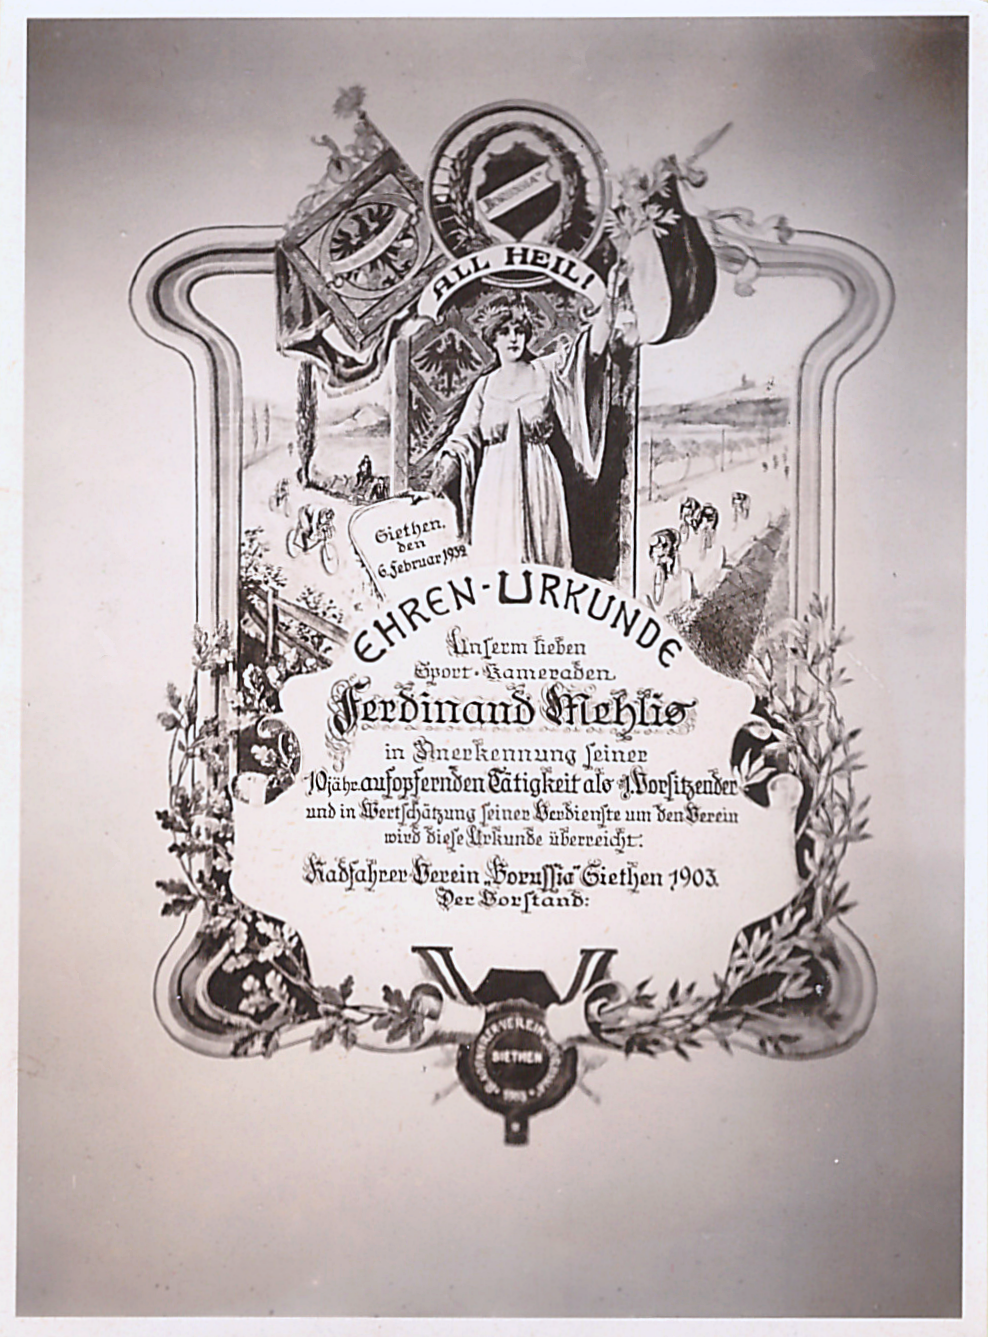 "BORUSSIA"
ALL HEIL!
Siethen,
den
6. Februar 1932
EHREN-URKUNDE
Unserm lieben
Sport-Kameraden
Ferdinand Mehlis
in Anerkennung seiner
10jähr. aufopfernden Tätigkeit als 1. Vorsitzender
und in Wertschätzung seiner Verdienste um den Verein
wird diese Urkunde überreicht.
Radfahrer-Verein „Borussia" Siethen 1903.
Der Vorstand:
SIETHEN